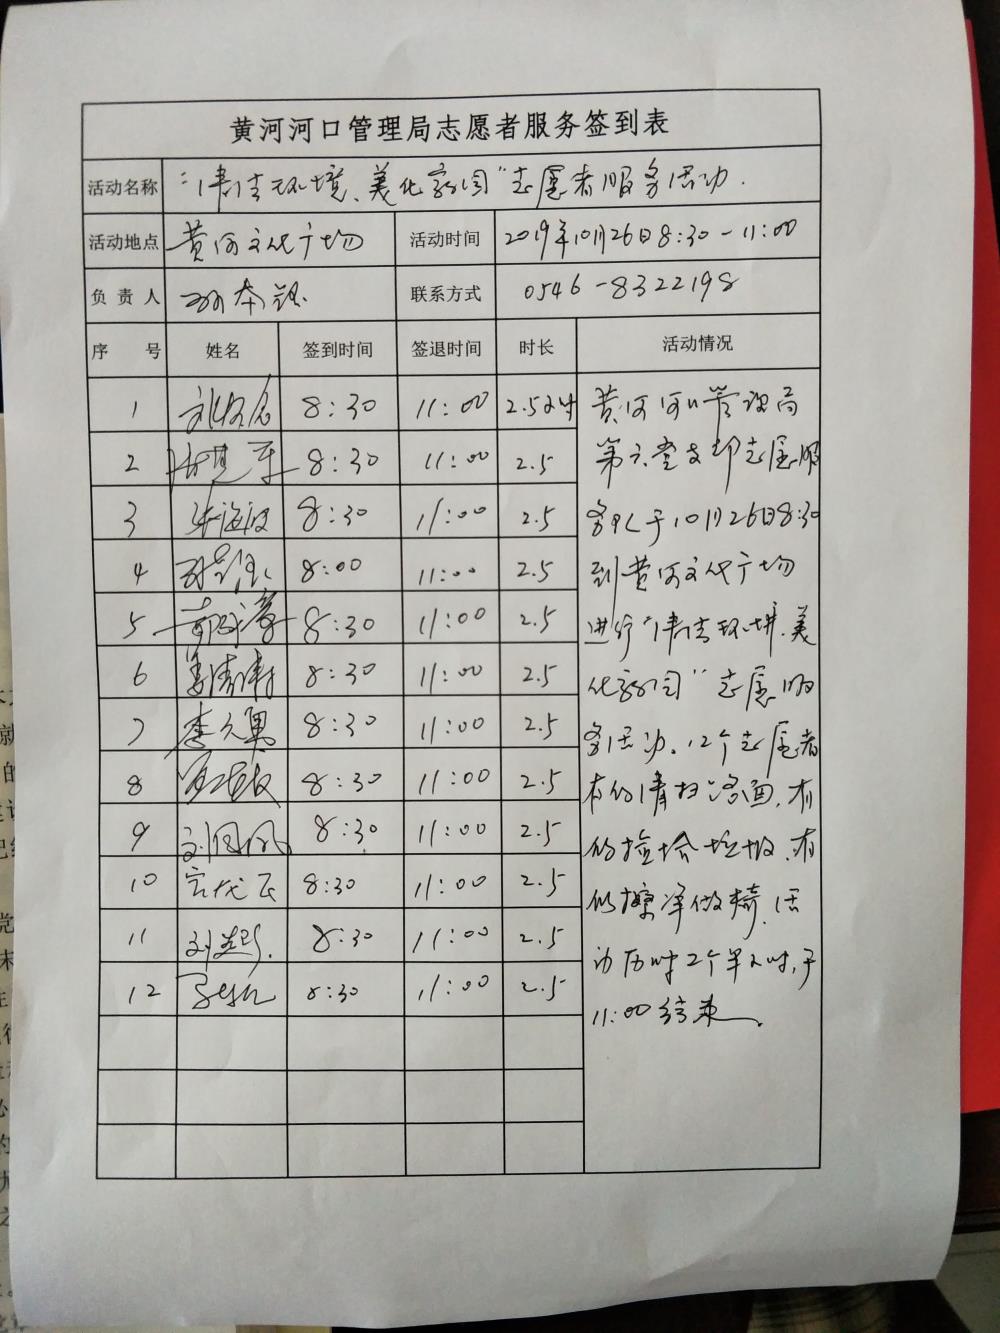 黄河河口管理局志愿者服务签到表
活动名称 "清洁环境、美化家园"志愿者服务活动.
活动地点 黄河文化广场 活动时间 2019年10月26日8:30-11:00
负责人 联系方式 0546-8322198
序号 姓名 签到时间 签退时间 时长 活动情况
1 8:30 11:00 2.5小时
2 8:30 11:00 2.5
3 张海波 8:30 11:00 2.5
4 8:00 11:00 2.5
5 8:30 11:00 2.5
6 8:30 11:00 2.5
7 8:30 11:00 2.5
8 8:30 11:00 2.5
9 8:30 11:00 2.5
10 8:30 11:00 2.5
11 8:30 11:00 2.5
12 8:30 11:00 2.5
黄河河口管理局
第六党支部志愿服
务队于10月26日8:30
到黄河文化广场
进行"清洁环境.美
化家园"志愿服
务活动.12个志愿者
有的清扫路面,有
的捡拾垃圾,有
的擦净做椅.活
动历时2个半小时,于
11:00结束.